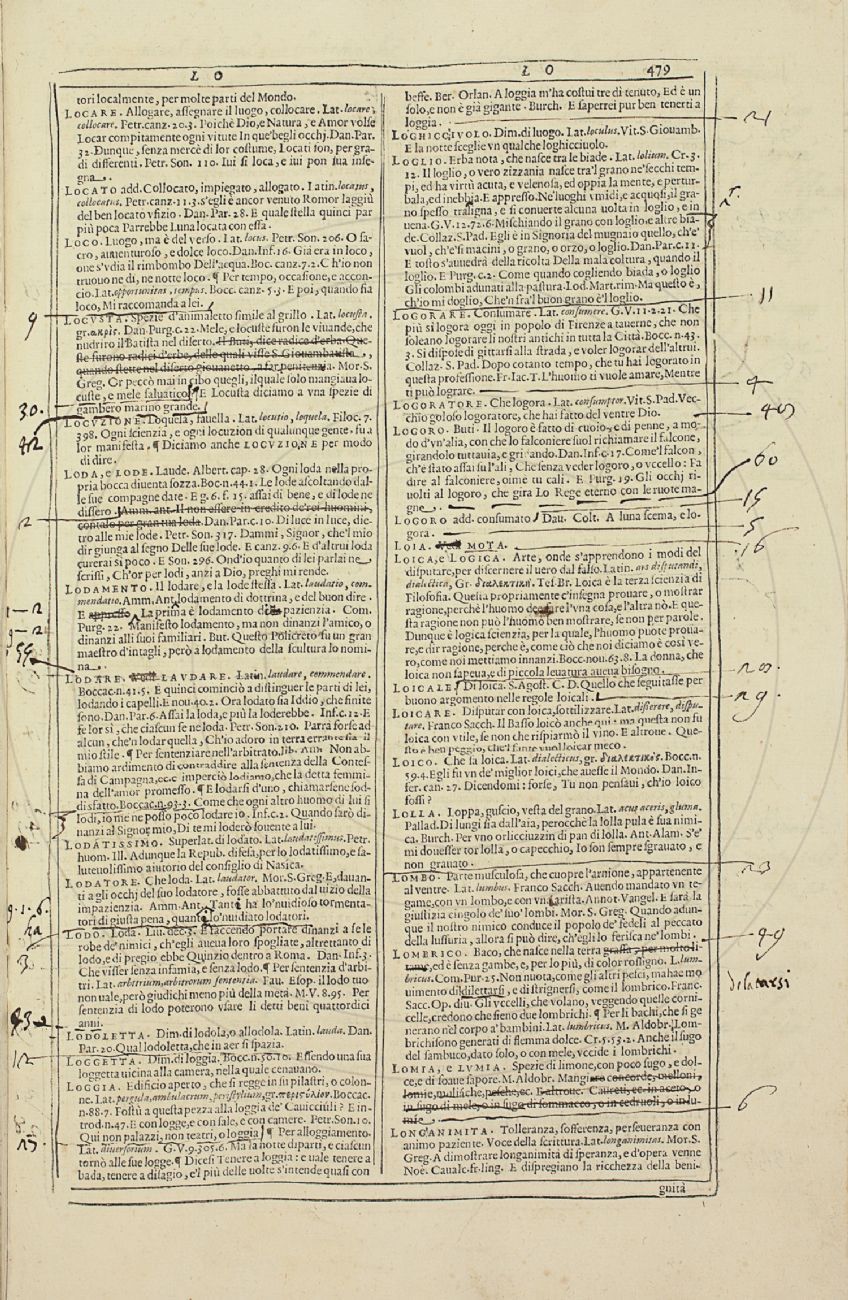 L O
L O
479
tori localmente, per molte parti del Mondo.
LOCARE. Allogare, assegnare il luogo, collocare. Lat. locare,
collocare. Petr. canz. 20. 3. Poichè Dio, e Natura, e Amor volse
Locar compitamente ogni vitute In que' begli occhj. Dan. Par.
32. Dunque, senza mercè di lor costume, Locati son, per gra-
di differenti. Petr. Son. 110. Iui si loca, e iui pon sua inse-
gna.
LOCATO add. Collocato, impiegato, allogato. Latin. locatus,
collocatus. Petr. canz. 11. 3. s'egli è ancor venuto Romor laggiù
del ben locato vfizio. Dan. Par. 28. E quale stella quinci par
più poca Parrebbe Luna locata con essa.
LOCO. Luogo, ma è del verso. Lat. locus. Petr. Son. 206. O sa-
cro, auuenturoso, e dolce loco. Dan. Inf. 16. Già era in loco,
one s'vdia il rimbombo Dell'acqua. Boc. canz. 7. 2. C h'io non
truouo ne dì, ne notte loco. ¶ Per tempo, occasione, e accon-
cio. Lat. opportunitas, tempus. Bocc. canz. 5. 3. E poi, quando sia
loco, Mi raccomanda a lei.
9
LOCVSTA. Spezie d'animaletto simile al grillo. Lat. locusta,
gr. ἀκρίς. Dan. Purg. c. 22. Mele, e locuste furon le viuande, che
nudriro il Batista nel diserto. Il Buti, dice radice d'erba. Que-
ste furono radici d'erbe, delle quali visse S. Giouambatista,
quando stette nel diserto giouanetto, a far penitenzia. Mor. S.
Greg. Or peccò mai in cibo quegli, il quale solo mangiaua lo-
custe, e mele saluatico ¶ E Locusta diciamo a vna spezie di
30.
gambero marino grande.
LOCVZIONE. Loquela, fauella. Lat. locutio, loquela. Filoc. 7.
42
398. Ogni scienzia, e ogni locuzion di qualunque gente fu a
lor manifesta. ¶ Diciamo anche LOCVZIONE per modo
di dire.
LODA, e LODE. Laude. Albert. cap. 28. Ogni loda nella pro-
pria bocca diuenta sozza. Boc. n. 44. 1. Le lode ascoltando dal-
le sue compagne date. E g. 6. f. 15. assai di bene, e di lode ne
2
dissero. Amm. ant. Il non essere in credito de' rei huomini,
contalo per gran tua loda. Dan. Par. c. 10. Di luce in luce, die-
tro alle mie lode. Petr. Son. 317. Dammi, Signor, che'l mio
dir giunga al segno Delle sue lode. E canz. 9. 6. E d'altrui loda
curerai sì poco. E Son. 296. Ond'io quanto di lei parlai ne
scrissi, Ch'or per lodi, anzi a Dio, preghi mi rende.
LODAMENTO. Il lodare, e la lode stessa. Lat. laudatio, com-
mendatio. Amm. Ant. lodamento di dottrina, e del buon dire.
E appresso La prima è lodamento di pazienzia. Com.
Purg. 22. Manifesto lodamento, ma non dinanzi l'amico, o
dinanzi alli suoi familiari. But. Questo Policreto fu un gran
maestro d'intagli, però a lodamento della scultura lo nomi-
na.
LODARE. LAVDARE. Latin. laudare, commendare.
Boccac. n. 41. 5. E quinci cominciò a distinguer le parti di lei,
lodando i capelli. E nou. 40. 2. Ora lodato sia Iddio, che finite
sono. Dan. Par. 6. Assai la loda, e più la loderebbe. Inf. c. 12. E
fe lor sì, che ciascun se ne loda. Petr. Son. 210. Parrà forse ad
alcun, che'n lodar quella, Ch'io adoro in terra errante sia il
mio stile. ¶ Per sentenziare nell'arbitrato. lib. Am. Non ab-
biamo ardimento di contraddire alla sentenza della Contes-
sa di Campagna, ecc imperciò lodiamo, che la detta femmi-
na dell'amor promesso. ¶ E lodarsi d'uno, chiamarsene sod-
disfatto. Boccac. n. 93. 3. Come che ogni altro huomo di lui si
lodi, io me ne posso poco lodare io. Inf. c. 2. Quando sarò di-
nanzi al Signor mio, Di te mi loderò souente a lui.
LODATISSIMO. Superlat. di lodato. Lat. laudatissimus. Petr.
huom. Ill. Adunque la Repub. difesa, per lo lodatissimo, e sa-
luteuolissimo aiutorio del consiglio di Nasica.
LODATORE. Che loda. Lat. laudator. Mor. S. Greg. E, dauan-
ti agli occhj del suo lodatore, fosse abbattuto dal uizio della
impazienzia. Amm. Ant. Tanti ha lo'nuidioso tormenta-
tori di giusta pena, quanti lo'nuidiato lodatori.
LODO. Loda. Liu. dec. 3. E faccendo portare dinanzi a se le
robe de' nimici, ch'egli aueua loro spogliate, altrettanto di
3
lodo, e di pregio ebbe Quinzio dentro a Roma. Dan. Inf. 3.
Che visser senza infamia, e senza lodo. ¶ Per sentenzia d'arbi-
tri. Lat. arbitrium, arbitrorum sententia. Fau. Esop. il lodo tuo
non uale, però giudichi meno più della metà. M. V. 8. 95. Per
sentenzia di lodo poterono vsare li detti beni quattordici
43
anni.
LODOLETTA. Dim. di lodola, o allodola. Latin. lauda. Dan.
Par. 20. Qual lodoletta, che in aer si spazia.
12
LOGGETTA. Dim. di loggia. Bocc. n. 50. 10. Essendo una sua
loggetta uicina alla camera, nella quale cenauano.
LOGGIA. Edificio aperto, che si regge in su pilastri, o colon-
ne. Lat. pergula, ambulacrum, peristylium, gr. περιστύλιον. Boccac.
n. 88. 7. Fostù a questa pezza alla loggia de' Cauicciuli? E in-
trod. n. 47. E con logge, e con sale, e con camere. Petr. Son. 10.
Qui non palazzi, non teatri, o loggia ¶ Per alloggiamento.
Lat. diuersorium. G. V. 9. 305. 6. Ma la notte diparti, e ciascun
tornò alle sue logge. ¶ Dicesi Tenere a loggia: e uale tenere a
bada, tenere a disagio, e'l più delle uolte s'intende quasi con
beffe. Ber. Orlan. A loggia m'ha costui tre dì tenuto, Ed è un
solo, e non è già gigante. Burch. E saperrei pur ben tenerti a
loggia.
21
LOGHICCIVOLO. Dim. di luogo. Lat. loculus. Vit. S. Giouamb.
E la notte sceglie vn qualche loghicciuolo.
LOGLIO. Erba nota, che nasce tra le biade. Lat. lolium. Cr. 3.
12. Il loglio, o vero zizzania nasce tra'l grano ne' secchi tem-
pi, ed ha virtù acuta, e velenosa, ed oppia la mente, e pertur-
bala, ed inebbia. E appresso. Ne' luoghi vmidi, e acquosi, il gra-
no spesso traligna, e si conuerte alcuna uolta in loglio, e in
uena. G. V. 12. 72. 6. Mischiando il grano con loglio, e altre bia-
de. Collaz. S. Pad. Egli è in Signoria del mugnaio quello, ch'e'
vuol, ch'e' si macini, o grano, o orzo, o loglio. Dan. Par. c. 12.
E tosto s'auuedrà della ricolta Della mala coltura, quando il
loglio. E Purg. c. 2. Come quando cogliendo biada, o loglio
Gli colombi adunati alla pastura. Lod. Mart. rim. Ma questo è,
ch'io mi doglio, Che'n fra'l buon grano è'l loglio.
11
LOGORARE. Consumare. Lat. consumere. G. V. 11. 2. 21. Che
più si logora oggi in popolo di Firenze a tauerne, che non
soleano logorare li nostri antichi in tutta la Città. Bocc. n. 43.
3. Si dispose di gittarsi alla strada, e voler logorar dell'altrui.
Collaz. S. Pad. Dopo cotanto tempo, che tu hai logorato in
questa professione. Fr. Iac. T. L'huomo ti vuole amare, Mentre
ti può lograre.
LOGORATORE. Che logora. Lat. consumptor. Vit. S. Pad. Vec-
chio goloso logoratore, che hai fatto del ventre Dio.
LOGORO. Buti. Il logoro è fatto di cuoio, e di penne, a mo-
do d'vn'alia, con che lo falconiere suol richiamare il falcone,
girandolo tuttauia, e gridando. Dan. Inf. c. 17. Come'l falcon,
ch'è stato assai su l'ali, Che senza veder logoro, o vccello: Fa
60
dire al falconiere, oime tu cali. E Purg. 19. Gli occhj ri-
uolti al logoro, che gira Lo Rege eterno con le ruote ma-
gne.
15
LOGORO add. consumato. Dau. Colt. A luna scema, e lo-
gora.
5
LOIA. MOTA.
16
LOICA, e LOGICA. Arte, onde s'apprendono i modi del
disputare, per discernere il uero dal falso. Latin. ars disputandi,
dialectica, Gr. διαλεκτική. Tes. Br. Loica è la terza scienzia di
Filosofia. Questa propriamente c'insegna prouare, o mostrar
ragione, perchè l'huomo dee far e l'vna cosa, e l'altra nò. E que-
sta ragione non può l'huomo ben mostrare, se non per parole.
Dunque è logica scienzia, per la quale, l'huomo puote proua-
re, e dir ragione, perche è, come ciò che noi diciamo è così ve-
ro, come noi mettiamo innanzi. Bocc. nou. 63. 8. La donna, che
loica non sapeua, e di piccola leuatura aueua bisogno.
LOICALE. Di loica. S. Agost. C. D. Quello che seguitasse per
buono argomento nelle regole loicali.
29
LOICARE. Disputar con loica, sottilizzare. Lat. disserere, dispu-
tare. Franco Sacch. Il Basso loicò anche qui: ma questa non fu
loica con vtile, se non che risparmiò il vino. E altroue. Que-
sto è ben peggio, che'l fante vuol loicar meco.
LOICO. Che sa loica. Lat. dialecticus, gr. διαλεκτικὸς. Bocc. n.
59. 4. Egli fu vn de' miglior loici, che auesse il Mondo. Dan. In-
fer. can. 27. Dicendomi: forse, Tu non pensaui, ch'io loico
fossi?
LOLLA. Loppa, guscio, vesta del grano. Lat. acus aceris, gluma.
Pallad. Di lungi sia dall'aia, perocchè la lolla pula è sua nimi-
ca. Burch. Per vno orlicciuzzin di pan di lolla. Ant. Alam. S'e'
mi douesser tor lolla, o capecchio, Io son sempre sgrauato, e
non grauato.
23
LOMBO. Parte musculosa, che cuopre l'arnione, appartenente
al ventre. Lat. lumbus. Franco Sacch. Auendo mandato vn te-
game, con vn lombo, e con vn arista. Annot. Vangel. E sarà la
giustizia cingolo de' suo' lombi. Mor. S. Greg. Quando adun-
que il nostro nimico conduce il popolo de' fedeli al peccato
della lussuria, allora si può dire, ch'egli lo ferisca ne' lombi.
49
LOMBRICO. Baco, che nasce nella terra grassa, per molto li-
tame, ed è senza gambe, e, per lo più, di color rossigno. L. lum-
bricus. Com. Pur. 25. Non nuota, come gli altri pesci, ma hae mo
dilatarsi
uimento di dilettarsi, e di strignersi, come il lombrico. Franc.
Sacc. Op. diu. Gli vccelli, che volano, veggendo quelle corni-
celle, credono che sieno due lombrichi. ¶ Per li bachi, che si ge
nerano nel corpo a' bambini. Lat. lumbricus. M. Aldobr. Lom-
brichi sono generati di flemma dolce. Cr. 5. 53. 2. Anche il sugo
del sambuco, dato solo, o con mele, vccide i lombrichi.
LOMIA, e LVMIA. Spezie di limone, con poco sugo, e dol-
ce, e di soaue sapore. M. Aldobr. Mangiare concorde, melloni,
lomie, malische, pesche, ec. E altroue. Caureti, ec. in aceto, o
in sugo di mele, o in sugo di sommacco, o in cedruoli, o in lu-
6
mie.
LONGANIMITA. Tolleranza, sofferenza, perseueranza con
animo paziente. Voce della scrittura. Lat. longanimitas. Mor. S.
Greg. A dimostrare longanimità di speranza, e d'opera venne
Noè. Caualc. fr. ling. E dispregiano la ricchezza della beni-
gnità